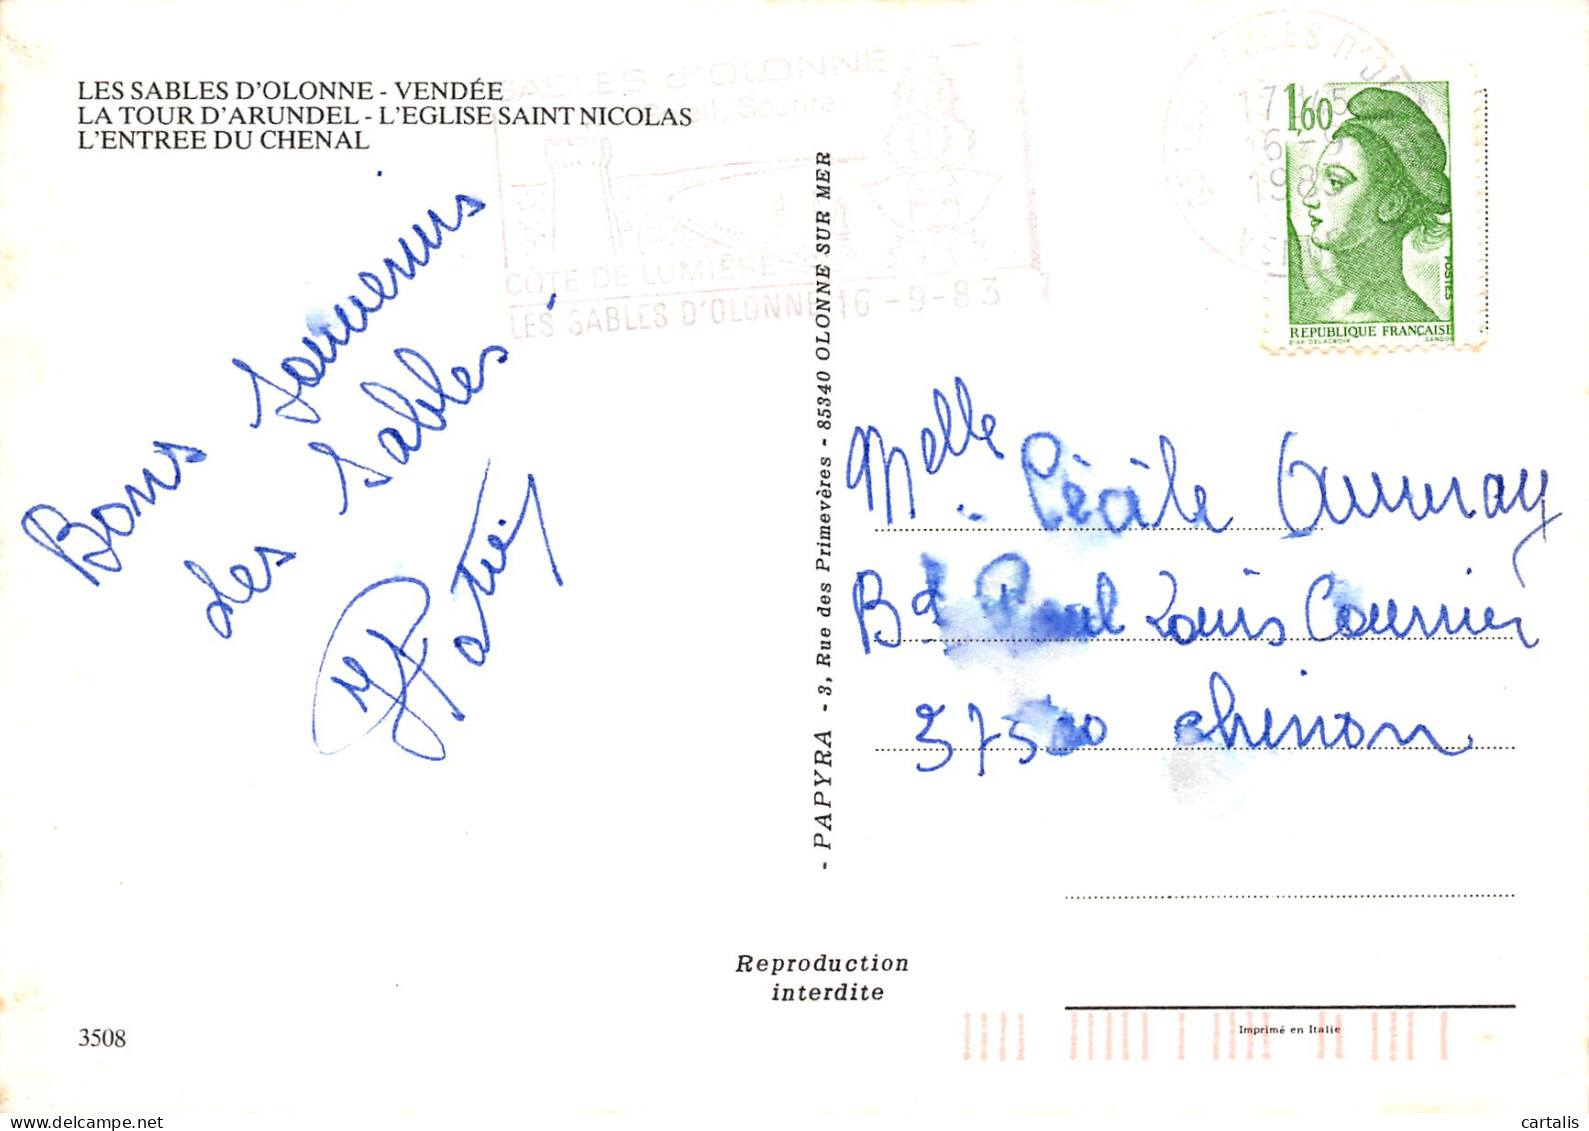 LES SABLES D'OLONNE - VENDÉE
LA TOUR D'ARUNDEL - L'EGLISE SAINT NICOLAS
L'ENTREE DU CHENAL
SABLES d'OLONNE
Soleil, Sourire
CÔTE DE LUMIÈRE
LES SABLES D'OLONNE 16 -9-83
17H45
16 -9
1983
1,60
POSTES
REPUBLIQUE FRANÇAISE
D'AP. DELACROIX GANDON
Bons Souvenirs
des Sables
- PAPYRA - 3, Rue des Primevères - 85340 OLONNE SUR MER
Melle Cécile
Bd Paul Louis Courrier
37500 Chinon
Reproduction
interdite
3508
Imprimé en Italie
cartalis